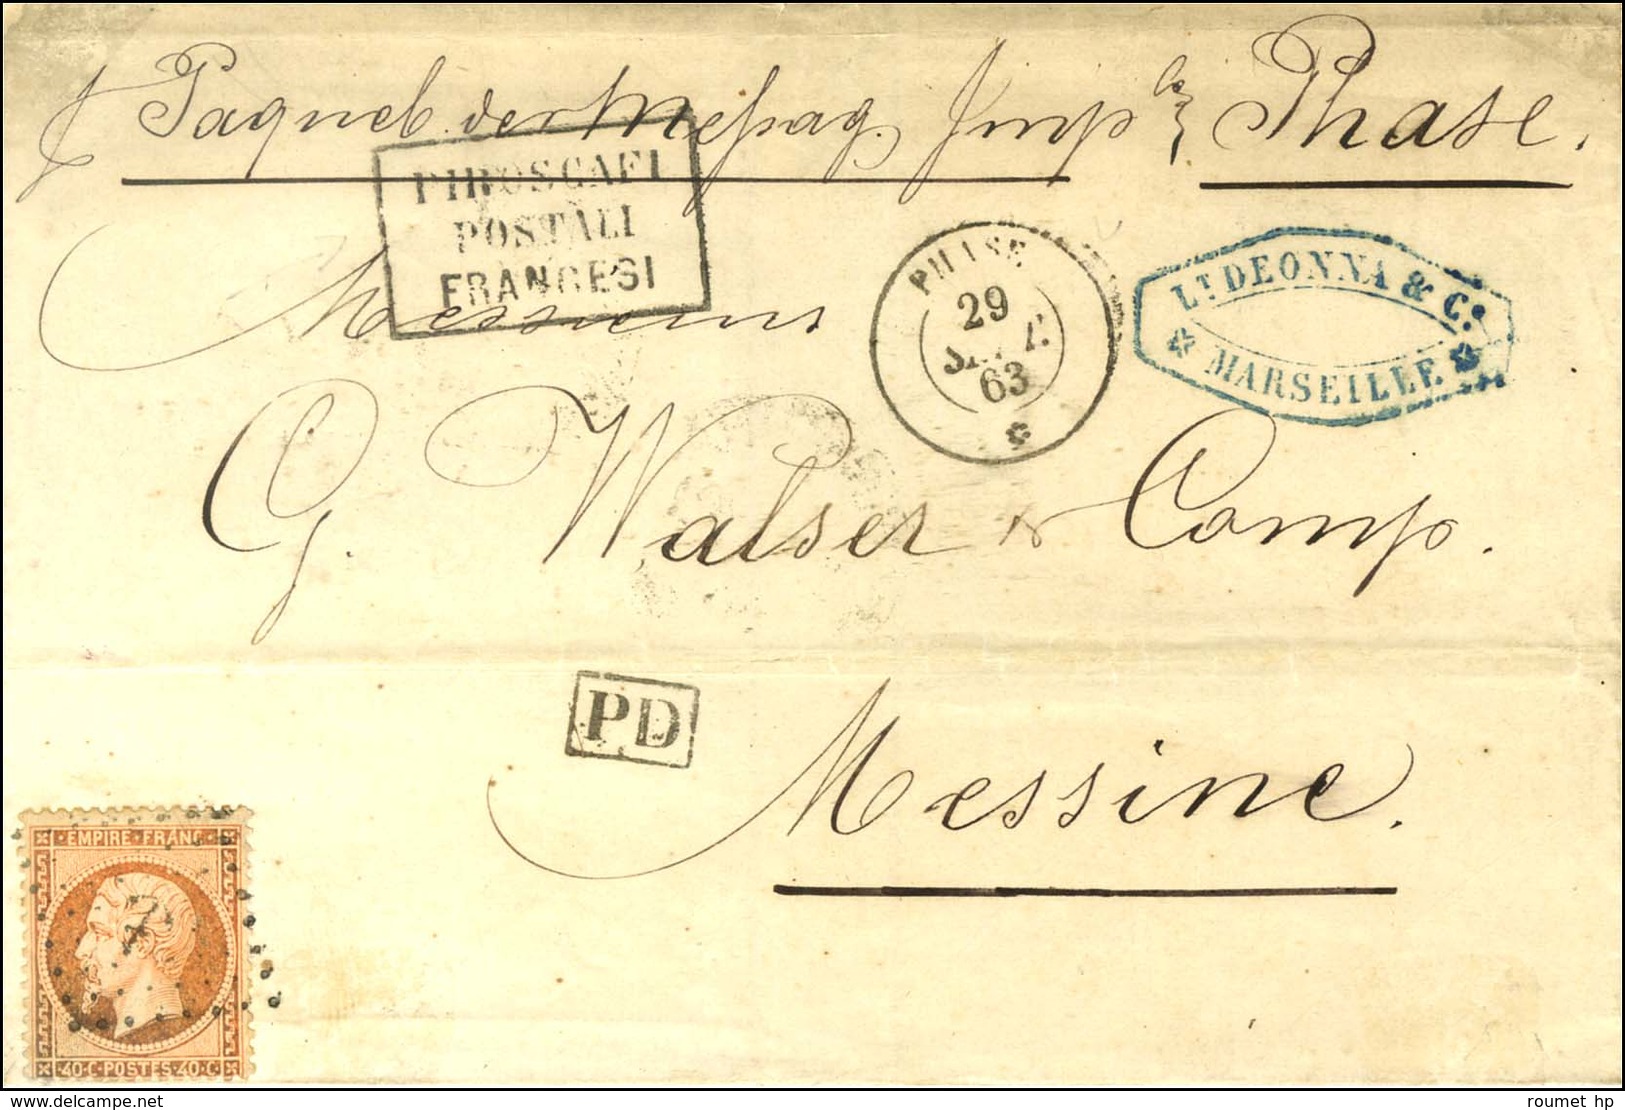 Paqueb. der Messag. Imp les Phase.
PIROSCAFI
POSTALI
FRANCESI
PHASE
29
SEPT.
63
LT DEONNA & Co.
MARSEILLE
Messieurs
G. Walser & Comp.
PD
Messine.
EMPIRE FRANC
40 C POSTES 40 C
roumet hp